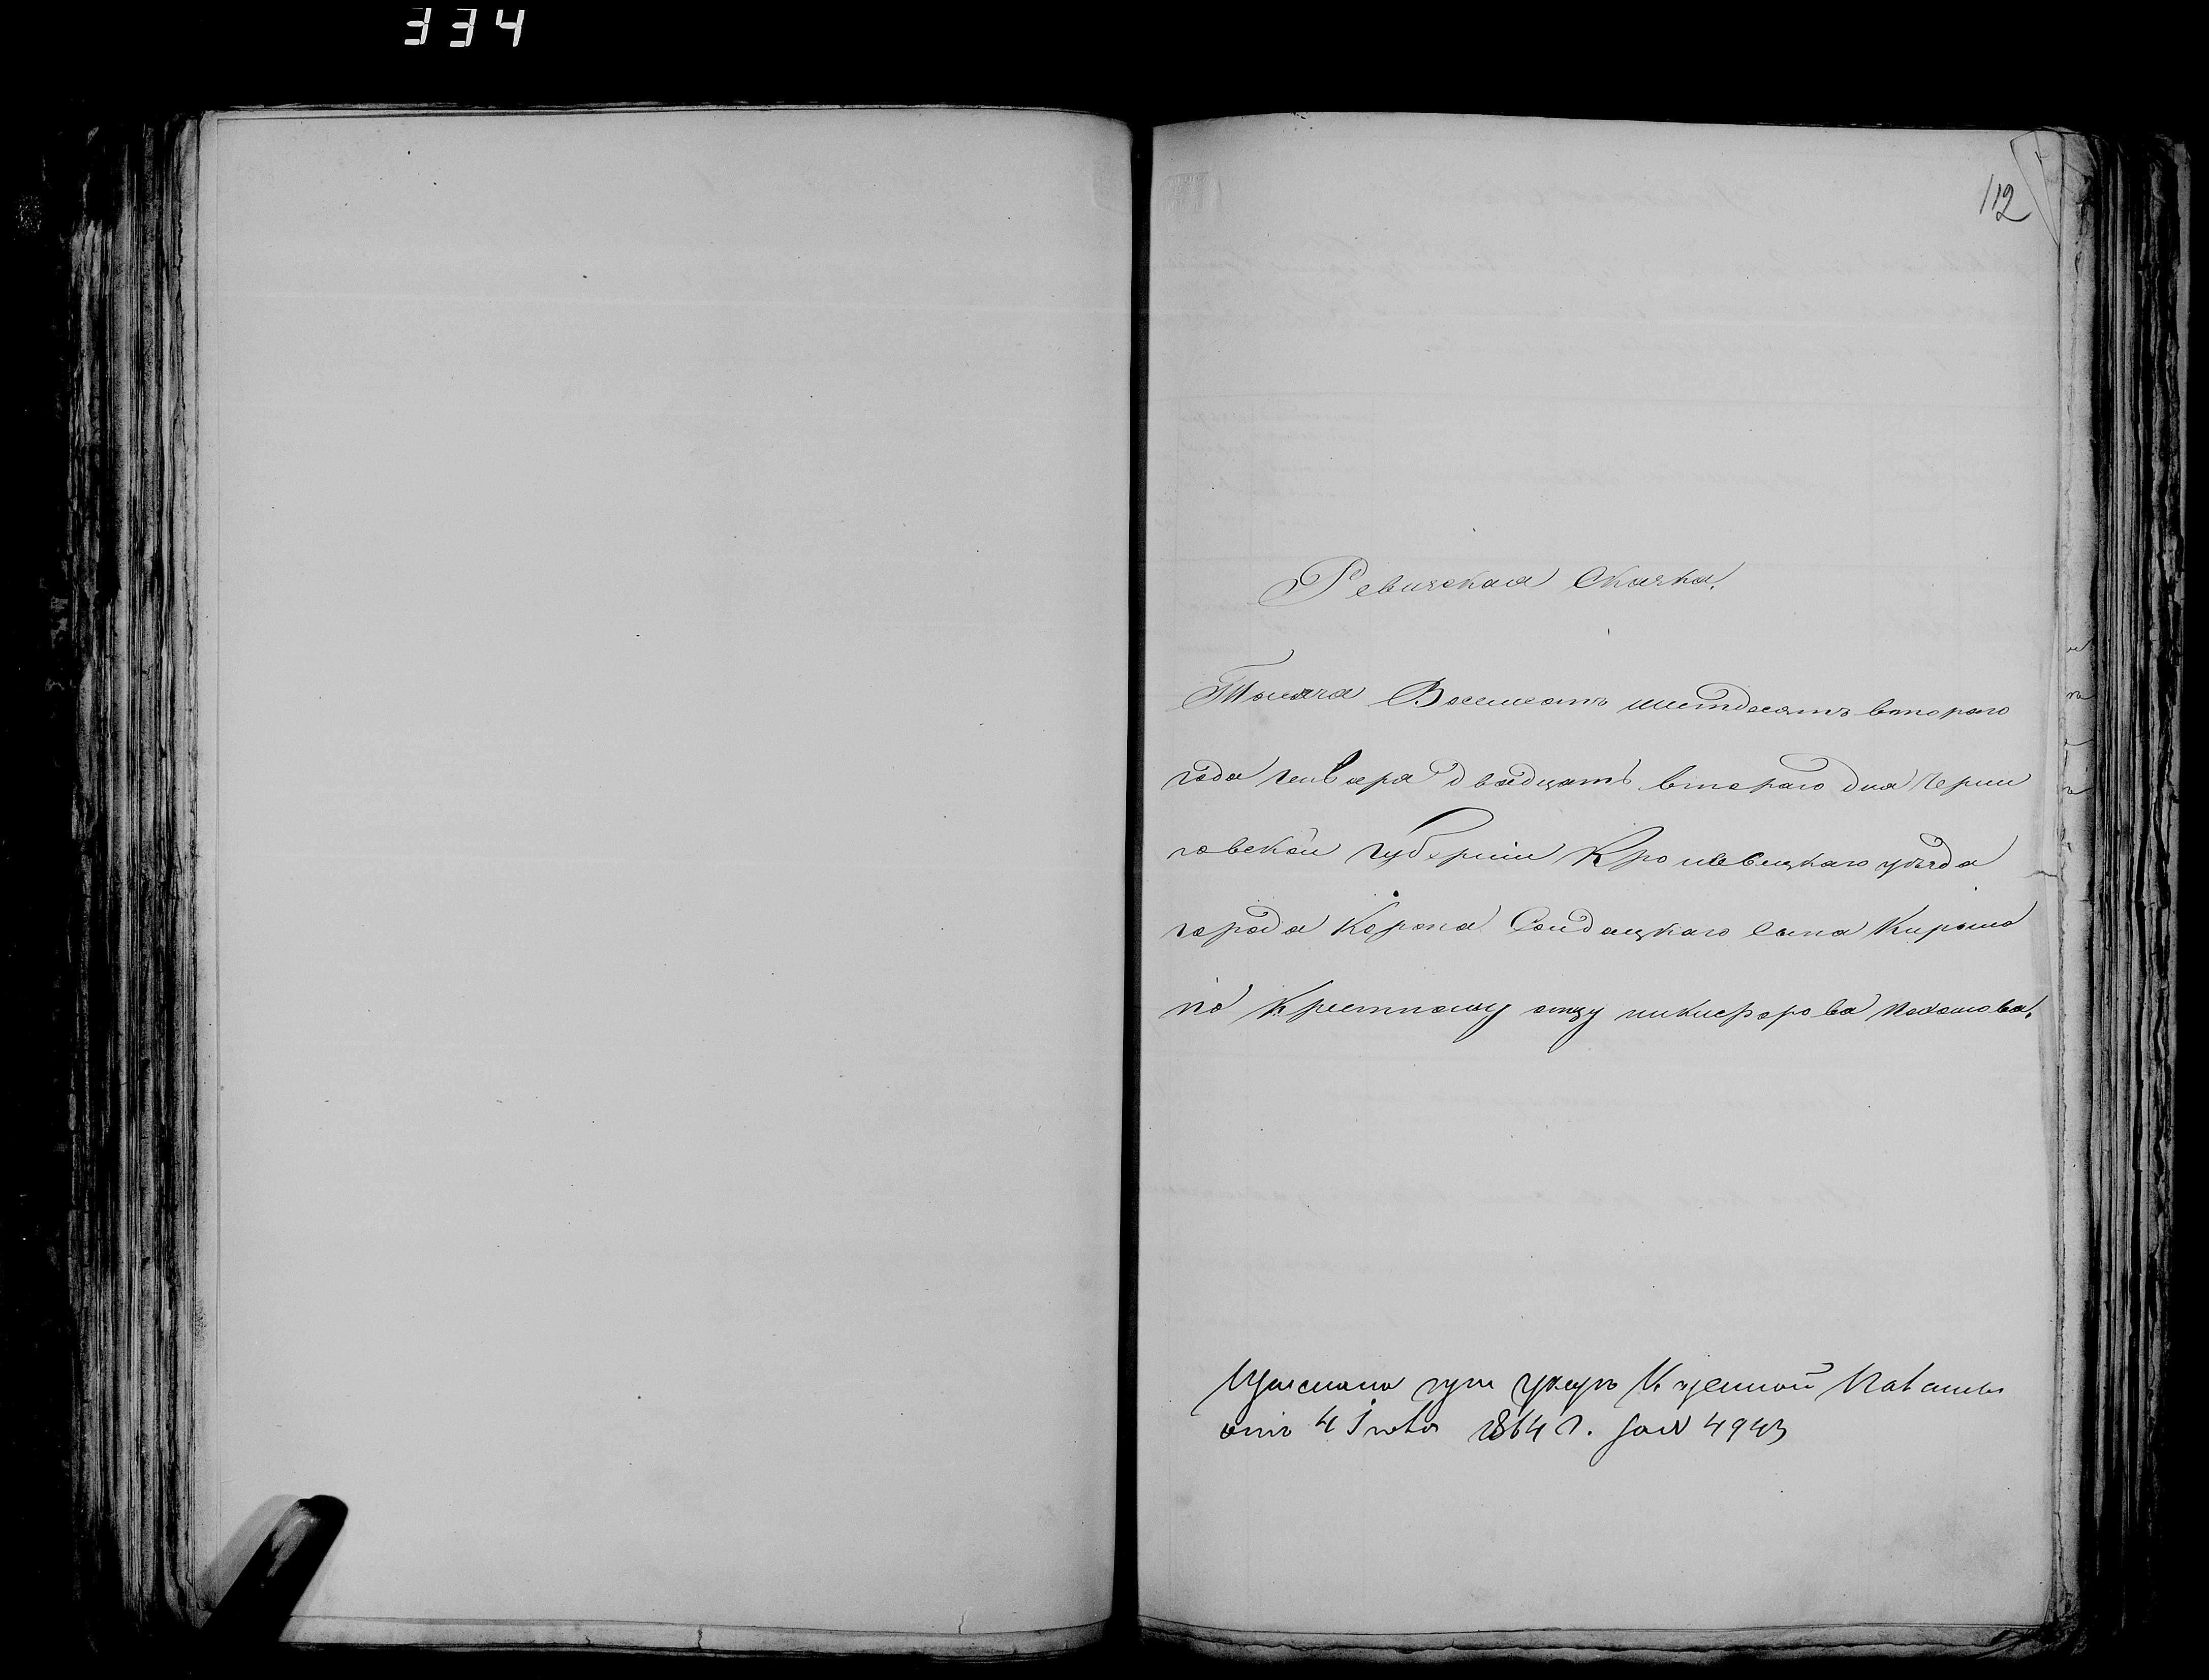 334
112
Ревизская Сказка.
Тысяча Восемсотъ шестдесятъ втораго
года генваря двадцать втораго дня Черни
говской губерніи Кролевецкаго уѣзда
города Коропа Солдацкаго сына Кирыла
по крестному отцу никифорова
при указѣ Казенной Палаты
отъ 4 1864 г. за № 4943